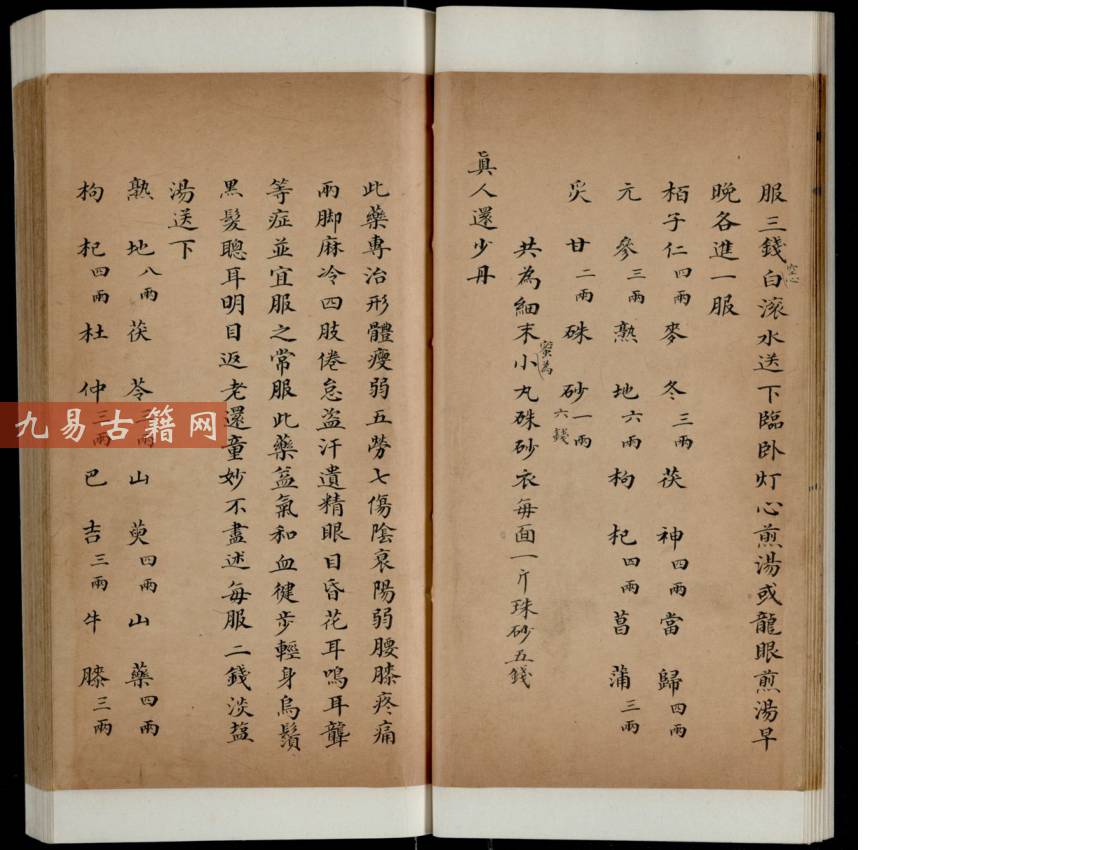 服三錢空心白滚水送下臨卧灯心煎湯或龍眼煎湯早
晚各進一服
栢子仁四兩麥冬三兩茯神四兩當歸四兩
元參三兩熟地六兩枸杞四兩菖蒲三兩
炙甘二兩硃砂一兩六錢
共為細末蜜為小丸硃砂衣每面一斤珠砂五錢
眞人還少丹
此藥專治形體瘦弱五勞七傷陰衰陽弱腰膝疼痛
兩脚麻冷四肢倦怠盗汗遺精眼目昏花耳鳴耳聾
等症並宜服之常服此藥益氣和血健步輕身烏鬚
黑髮聰耳明目返老還童妙不盡述每服二錢淡塩
湯送下
熟地八兩茯苓三兩山萸四兩山藥四兩
枸杞四兩杜仲三兩巴吉三兩牛膝三兩
九易古籍网